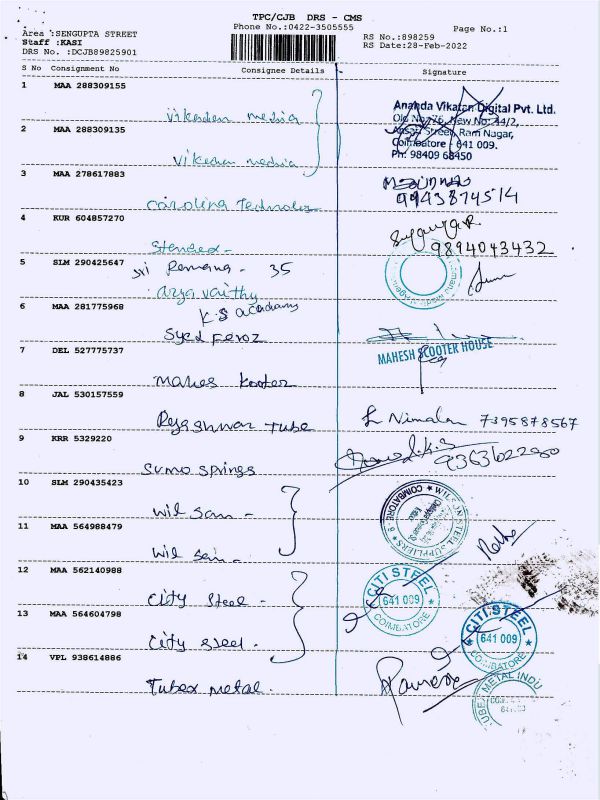 TPC/CJB DRS - CMS
Phone No.:0422-3505555
Page No.:1
Area :SENGUPTA STREET
Staff :KASI
DRS No. :DCJB89825901
RS No.:898259
RS Date:28-Feb-2022
S No Consignment No Consignee Details Signature
1 MAA 288309155
vikadan media
Ananda Vikatan Digital Pvt. Ltd.
Old No:76, New No: 44/2,
Ansari Street, Ram Nagar,
Coimbatore - 641 009.
Ph: 98409 68450
2 MAA 288309135
vikadan media
3 MAA 278617883
Carolina Technolos
9943874514
4 KUR 604857270
9894043432
5 SLM 290425647
Sri Ramana - 35
arya vaithy
6 MAA 281775968
K.S academy
Syed Feroz
MAHESH SCOOTER HOUSE
7 DEL 527775737
Mahes kooter
8 JAL 530157559
Rajashwar Tube
Nirmalan 7395878567
9 KRR 5329220
Sumo Springs
10 SLM 290435423
Wil Son -
WILSON STEEL SUPPLIERS COIMBATORE - 9
11 MAA 564988479
Wil Son -
12 MAA 562140988
City Steel -
CITI STEEL
641 009
COIMBATORE
13 MAA 564604798
City Steel -
CITI STEEL
641 009
COIMBATORE
14 VPL 938614886
Tubex Metal.
METAL INDU